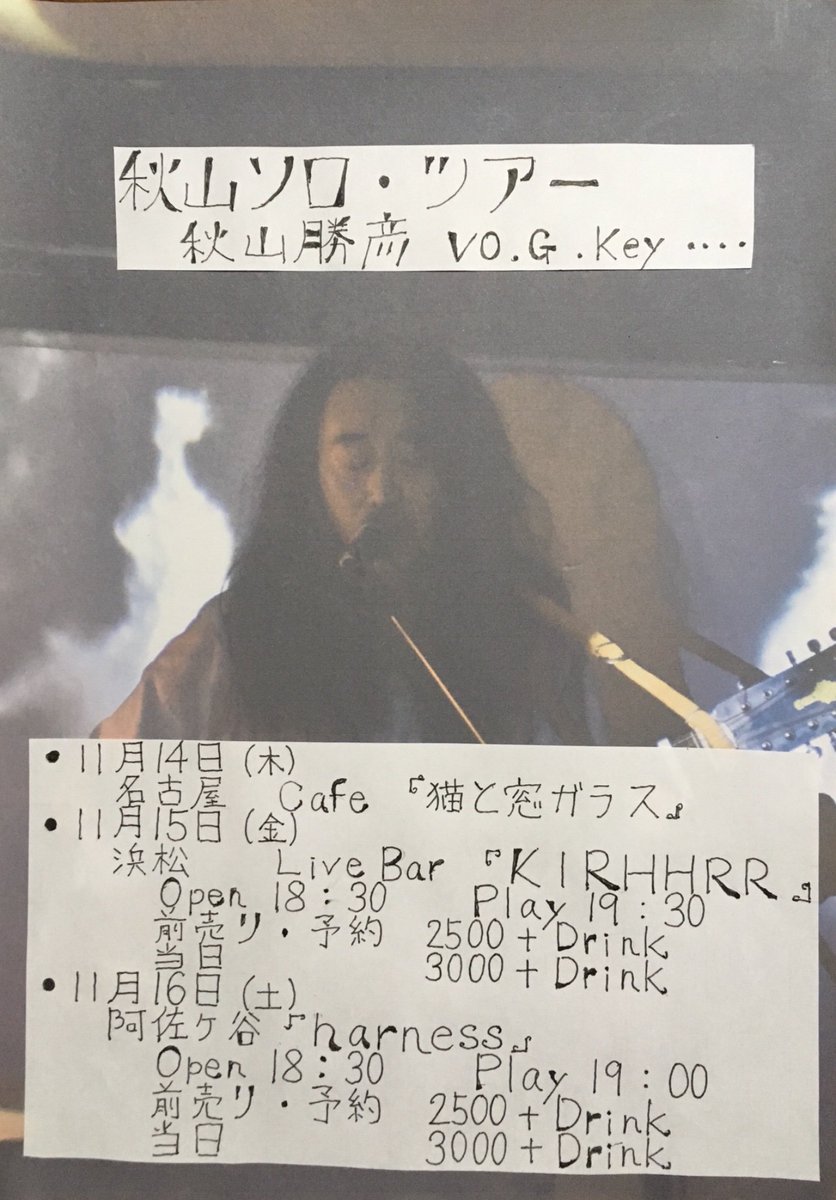 秋山ソロ・ツアー
秋山勝彦 VO.G.Key ‥‥
• 11月14日(木)
名古屋 Cafe 『猫と窓ガラス』
• 11月15日(金)
浜松 Live Bar 『KIRHHRR』
Open 18:30 Play 19:30
前売り・予約 2500+Drink
当日 3000+Drink
• 11月16日(土)
阿佐ケ谷『harness』
Open 18:30 Play 19:00
前売り・予約 2500+Drink
当日 3000+Drink